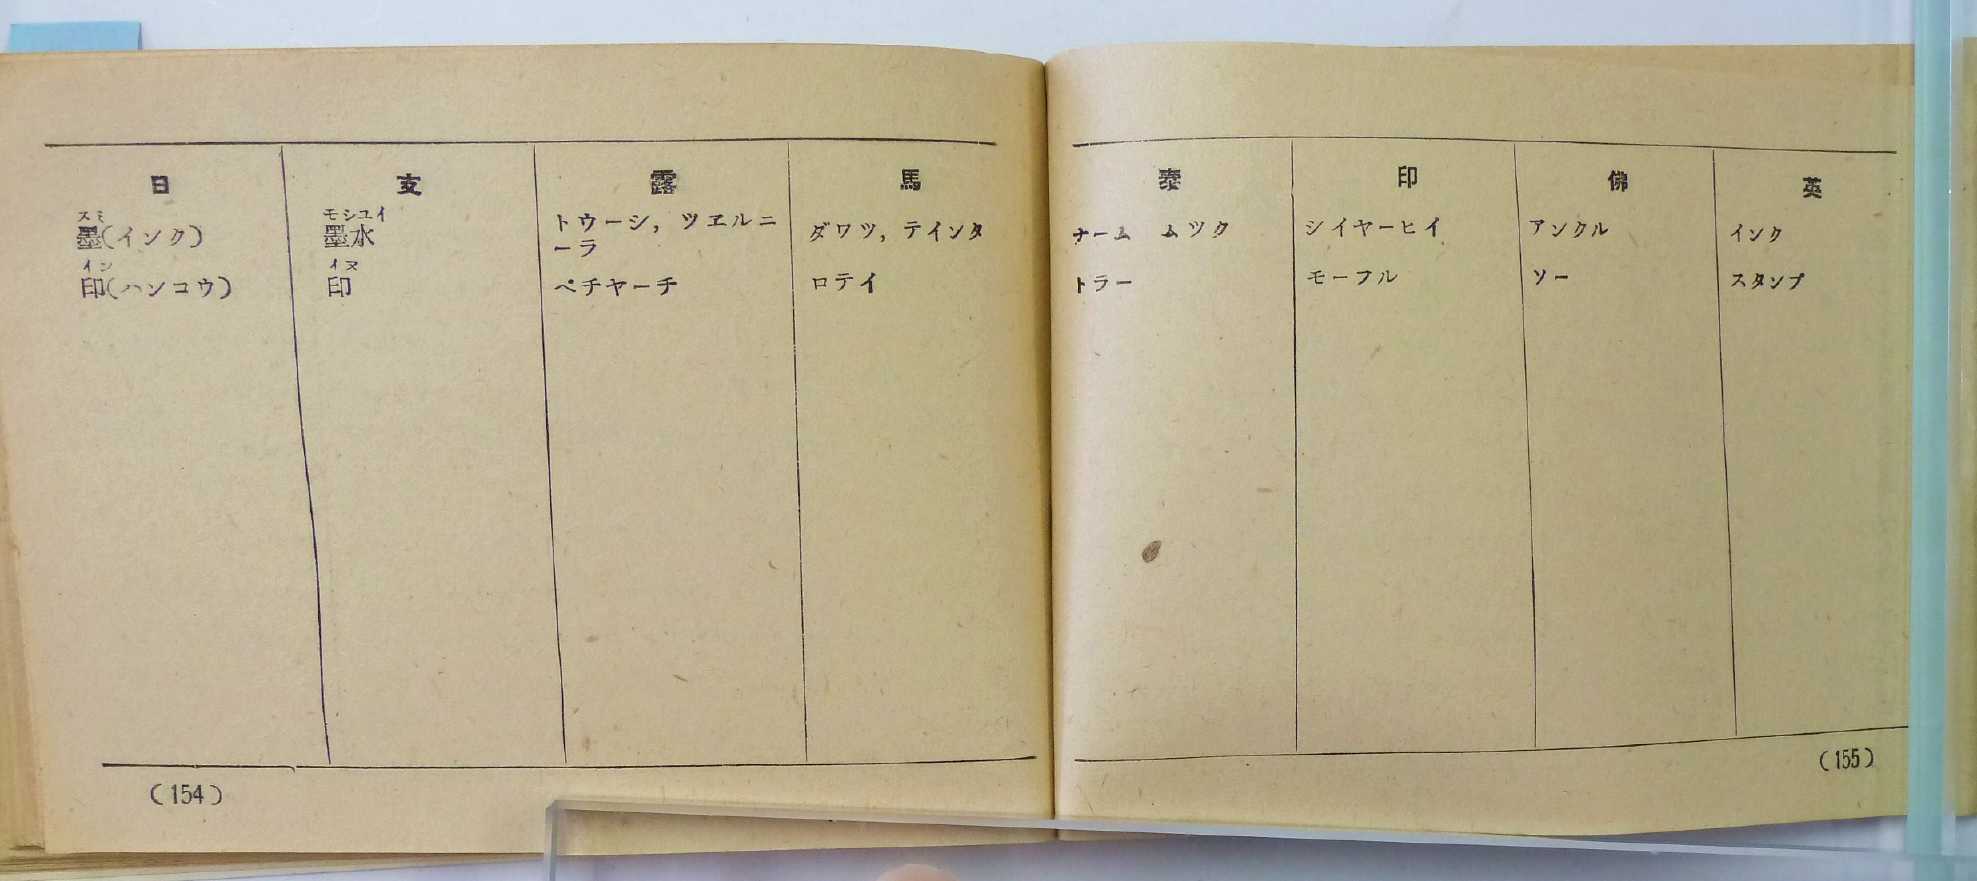 日 支 露 馬 泰 印 佛 英
スミ モシユイ
墨(インク) 墨水 トウーシ, ツヱルニーラ ダワツ, テインタ ナーム ムツク シイヤーヒイ アンクル インク
イン イヌ
印(ハンコウ) 印 ペチヤーチ ロテイ トラー モーフル ソー スタンプ
(154) (155)